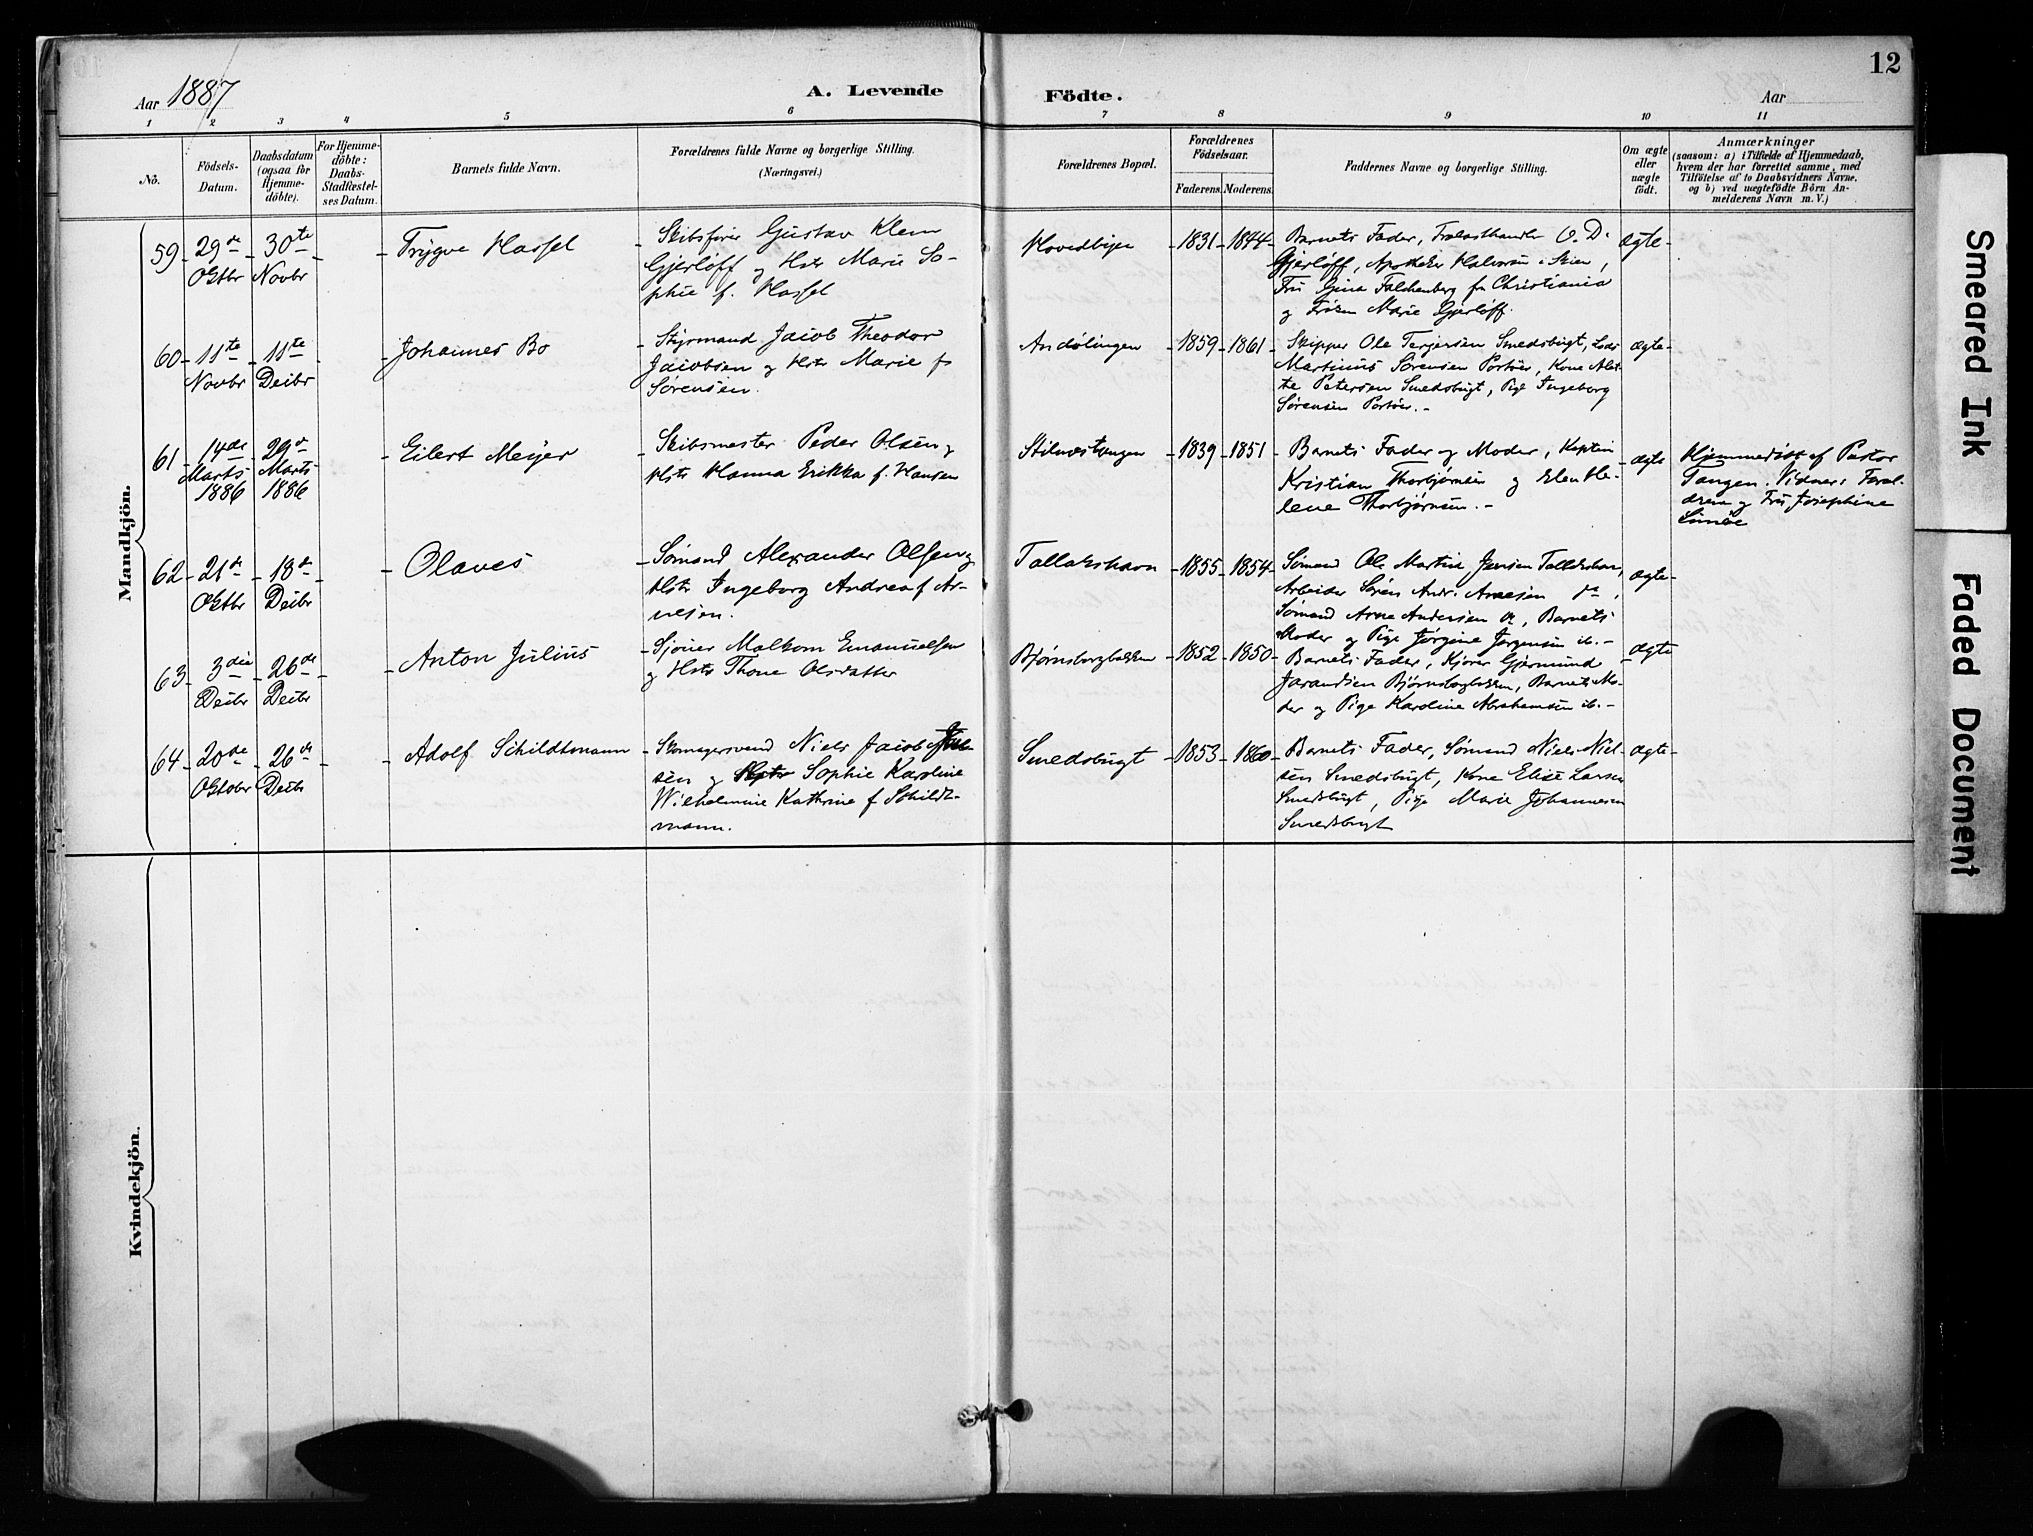 12
Aar 1887
A. Levende Födte.
Aar
1 2 3 4 5 6 7 8 9 10 11
No.
Födsels-Datum.
Daabsdatum (ogsaa for Hjemme-döbte).
For Hjemme-döbte: Daabs-Stadfæstel-ses Datum.
Barnets fulde Navn.
Forældrenes fulde Navne og borgerlige Stilling.
(Næringsvei.)
Forældrenes Bopæl.
Forældrenes Födselsaar.
Faderens. Moderens.
Faddernes Navne og borgerlige Stilling.
Om ægte eller uægte födt.
Anmærkninger
(saasom: a) i Tilfælde af Hjemmedaab,
hvem der har forrettet samme, med
Tilföielse af to Daabsvidners Navne,
og b) ved uægtefödte Börn An-
melderens Navn m. V.)
Mandkjön.
59 29de Oktbr 30te Novbr
Trygve Hassel
Skibsfører Gustav Klem
Gjerløff og Hstr Marie So-
phie f. Hassel
Hovedbyen
1831 1844
Barnets Fader, Trælasthandler O. D.
Gjerløff, Apotheker Halvorsen Skien,
Fru Gina Falchenberg fr Christiania
og Frøken Marie Gjerløff.
ægte
60 11te Novbr 11te Decbr
Johannes Bo
Styrmand Jacob Theodor
Jacobsen og Hstr Marie f
Sørensen.
Andølingen
1859 1861
Skipper Ole Terjersen Smedsbugt, Lods
Martinus Sørensen Portöer, Kone Alet-
te Petersen Smedsbugt, Pige Ingeborg
Sørensen Portöer.
ægte
61 14de Marts 1886 29de Marts 1886
Eilert Meyer
Skibsmester Peder Olsen og
Hstr Hanna Erikka f. Hansen
Stilnestangen
1839 1851
Barnets Fader og Moder, Kaptein
Kristian Thorbjørnsen og Elen He-
lene Thorbjørnsen.
ægte
Hjemmedöbt af Pastor
Tangen. Vidner: Foræl-
drene og Fru Josephine
62 21de Oktbr 18de Decbr
Olaves
Sømand Alexander Olsen og
Hstr Ingeborg Andrea f Ar-
nesen.
Tallakshavn
1855 1854
Sømand Ole Martin Jensen Tallakshavn,
Arbeider Søren Andr. Arnesen do,
Sømand Arne Andersen do, Barnets
Moder og Pige Jørgine Jørgensen ib.
ægte
63 3die Decbr 26de Decbr
Anton Julius
Sjöuer Malkom Emanuelsen
og Hstr Thone Olsdatter
Bjørnsborgbakken
1852 1850
Barnets Fader, Kjører Gjermund
Jarandsen Bjørnsborgbakken, Barnets Mo-
der og Pige Karoline Abrahamsen ib.
ægte
64 20de Oktobr 26de Decbr
Adolf Schildtmann
Skomagersvend Niels Jacob
sen og Hstr Sophie Karoline
Wilhelmine Kathrine f Schildt-
mann.
Smedsbugt
1853 1860
Barnets Fader, Sømand Niels Niel-
sen Smedsbugt, Kone Elise Larsen
Smedsbugt, Pige Marie Johannesen
Smedsbugt
ægte
Kvindekjön.
Smeared Ink
Faded Document